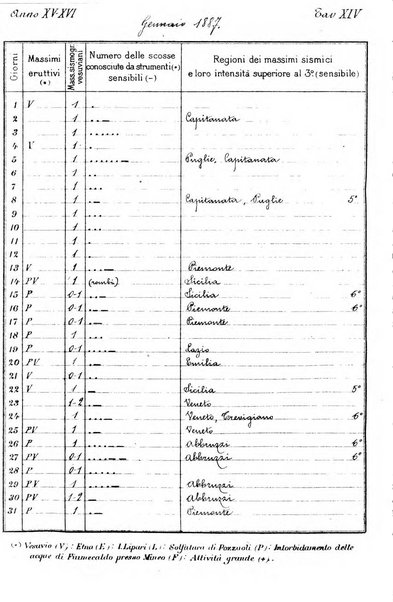 Anno XV-XVI Gennaio 1887. Tav XIV
Giorni
Massimi eruttivi (*)
Mass. sismogr. vesuviani
Numero delle scosse conosciute da strumenti (•) sensibili (-)
Regioni dei massimi sismici e loro intensità superiore al 3º (sensibile)
1 V 1 .
2 1 ...- Capitanata
3 1 ......
4 V 1 ..
5 1 ......- Puglie, Capitanata
6 1 ...
7 1 ...
8 1 ...- Capitanata, Puglie 5º
9 1 ...
10 1 ...
11 1 .
12 1 .
13 V 1 ...- Piemonte
14 PV 1 (rombi) Sicilia
15 P 0-1 ..- Sicilia 6º
16 P 0-1 ...- Piemonte 6º
17 P 0-1 ...- Piemonte
18 P 1 ...
19 P 0-1 ....- Lazio
20 PV 1 ..- Emilia
21 V 0-1 ..
22 V 1 .- Sicilia 5º
23 1-2 ..- Veneto
24 1 ....- Veneto, Trevigiano 6º
25 PV 1 .- Veneto
26 P 1 .....- Abbruzzi 6º
27 PV 0-1 .....-- Abbruzzi 6º
28 P 0-1 .....
29 PV 1 ...- Abbruzzi
30 PV 1-2 .- Abbruzzi
31 P 1 .- Piemonte
(*) Vesuvio (V): Etna (E): I. Lipari (L): Solfatara di Pozzuoli (P): Intorbidamento delle
acque di Fiumecaldo presso Mineo (F): Attività grande (+).